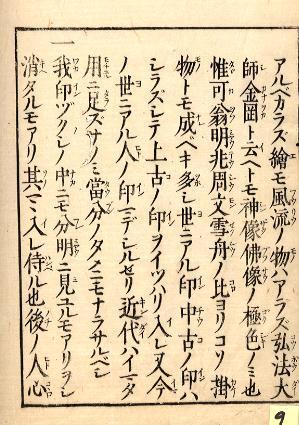 アルベカラズ繪モ風流ノ物ハアラズ弘法大
師金岡ト云ヘトモ神像佛像ノ極色ノミ也
惟可翁明兆周文雪舟ノ比ヨリコソ掛
物トモ成ベキ多シ世ニアル印中古ノ印ハ
シラズシテ上古ノ印ヲイツハリ入レ又今
ノ世ニアル人ノ印ニデシルセリ近代ハイニタ
用ニ足ズサノミ當分ノタメニモナラサルベシ
一我印ヅクシノ中ニモ分明ニ見ユルモアリヲシ
消タルモアリ其マヽ入レ侍ル也後ノ人心
9